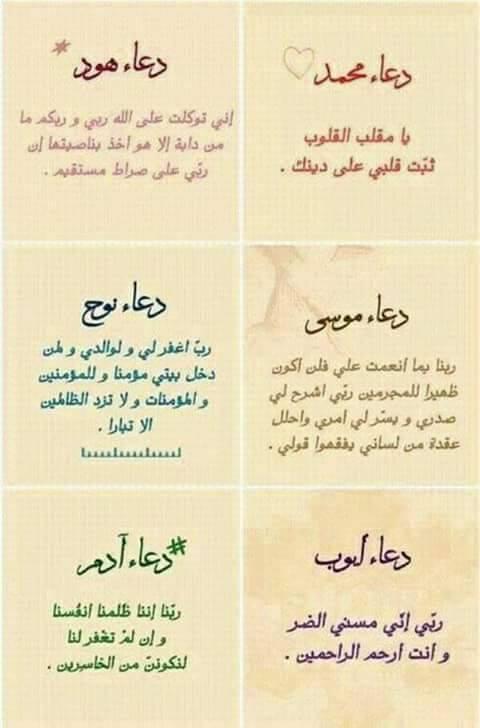 دعاء محمد
يا مقلب القلوب
ثبّت قلبي على دينك .
دعاء هود
إني توكلت على الله ربي و ربكم ما
من دابة إلا هو آخذ بناصيتها إن
ربّي على صراط مستقيم .
دعاء موسى
ربنا بما أنعمت علي فلن أكون
ظهيرا للمجرمين ربّي اشرح لي
صدري و يسّر لي امري واحلل
عقدة من لساني يفقهوا قولي .
دعاء نوح
ربّ اغفر لي و لوالدي و لمن
دخل بيتي مؤمنا و للمؤمنين
و المؤمنات و لا تزد الظالمين
الا تبارا .
دعاء أيوب
ربّي إنّي مسني الضر
و أنت أرحم الراحمين .
#دعاء آدم
ربّنا إننا ظلمنا انفُسنا
و إن لمْ تغْفر لنا
لنكوننّ من الخاسِرين .